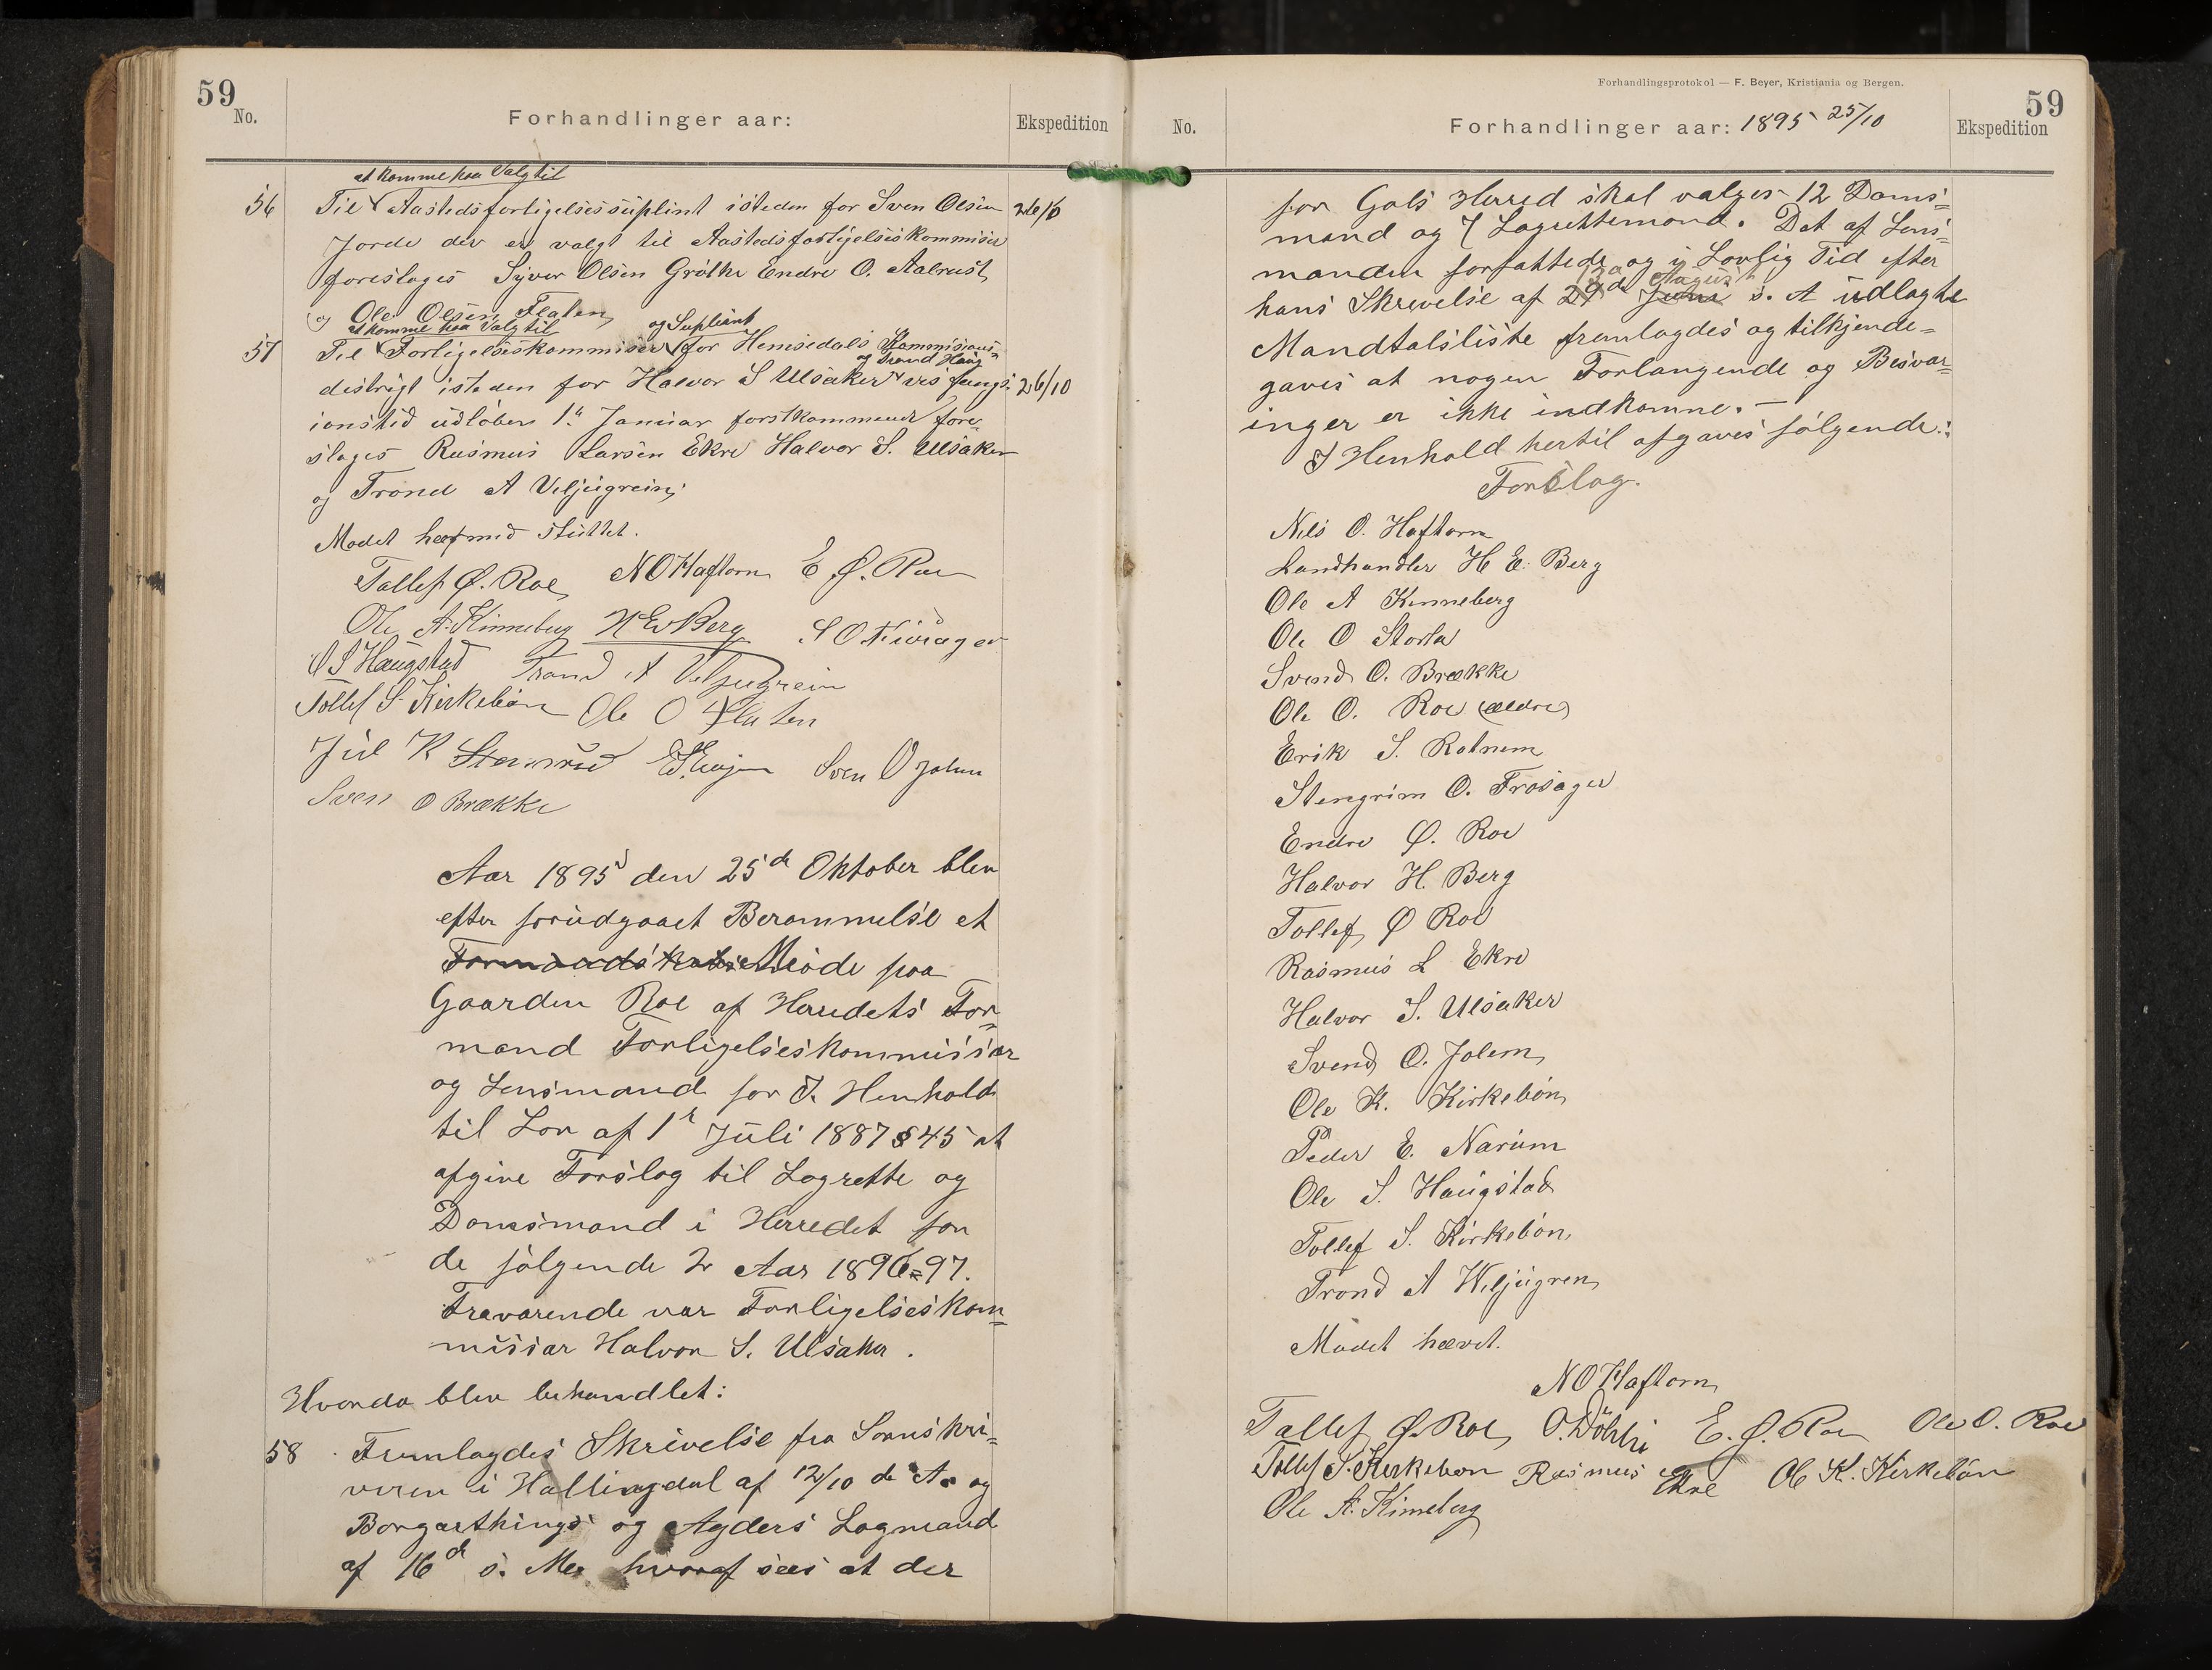 59
No.
Forhandlinger aar:
Ekspedition
at komme paa Valg til
56 Til Aastedsforligelsessuplint isteden for Sven Olsen 26/10
Jorde der er valgt til Aastedsforligelseskommisær
foreslages Syver Olsen Grøthe Endre O. Aalrust
og Ole Olsen Flaten
at komme paa Valg til og Supliant
57 Til Forligelseskommisær for Hemsedals Kommisions-
og Trond Haug
distrigt isteden for Halvor S Ulsaker vis fungs- 26/10
ionstid udløber 1ste Januar førstkommende fore-
slages Rasmus Larsen Ekre Halvor S. Ulsaker
og Trond A Veljugrein,
Mødet hermed sluttet.
Tollef Ø. Roe N O Haftorn E Ø. Roe
Ole A. Kinneberg H E Berg S O Frøsager
O S Haugstad Trond A Veljugrein
Tollef S. Kirkebøn Ole O Flaten
Jul K Stensrud Sven O Jolem
Sven O Brække
Aar 1895 den 25de Oktober blev
efter forudgaaet Berammelse et
Formandskabs Møde paa
Gaarden Roe af Herredets For-
mand Forligelseskommissær
og Lensmand for I Henhold
til Lov af 1ste Juli 1887 § 45 at
afgive Forslag til Lagrette og
Domsmænd i Herredet for
de følgende 2 Aar 1896=97.
Fraværende var Forligelseskom=
missær Halvor S. Ulsaker.
Hvorda blev behandlet:
58 Fremlagdes Skrivelse fra Sorenskri-
veren i Hallingdal af 12/10 d. A. og
Borgarthings og Agders Lagmand
af 16de s. M. hvoraf sees at der
Forhandlingsprotokol — F. Beyer, Kristiania og Bergen.
59
No.
Forhandlinger aar: 1895 25/10
Ekspedition
for Gols Herred skal valges 12 Doms=
mænd og 7 Lagrettemænd. Det af Lens=
manden forfattede og i Lovlig Tid efter
13de August
hans Skrivelse af 29de Juni s. A udlagte
Mandtalsliste fremlagdes og tilkjende=
gaves at nogen Forlangende og Besvær=
inger er ikke indkomne. —
I Henhold hertil afgaves følgende:
Forslag.
Nils O. Haftorn
Landhandler H E. Berg
Ole A Kinneberg
Ole O Storla
Svend O. Brække
Ole O. Roe (ældre)
Erik S. Rotnem
Stengrim O. Frøsager
Endre Ø. Roe
Halvor H. Berg
Tollef Ø Roe
Rasmus L Ekre
Halvor S. Ulsaker
Svend O. Jolem
Ole K. Kirkebøn
Peder E. Narum
Ole S. Haugstad
Tollef S. Kirkebøn
Trond A Weljugren
Mødet hævet.
N O Haftorn
Tollef Ø. Roe, O. Døhli E. Ø. Roe Ole O. Roe
Tollef S. Kirkebøn Rasmus Ekre Ole K. Kirkebøn
Ole A. Kinneberg